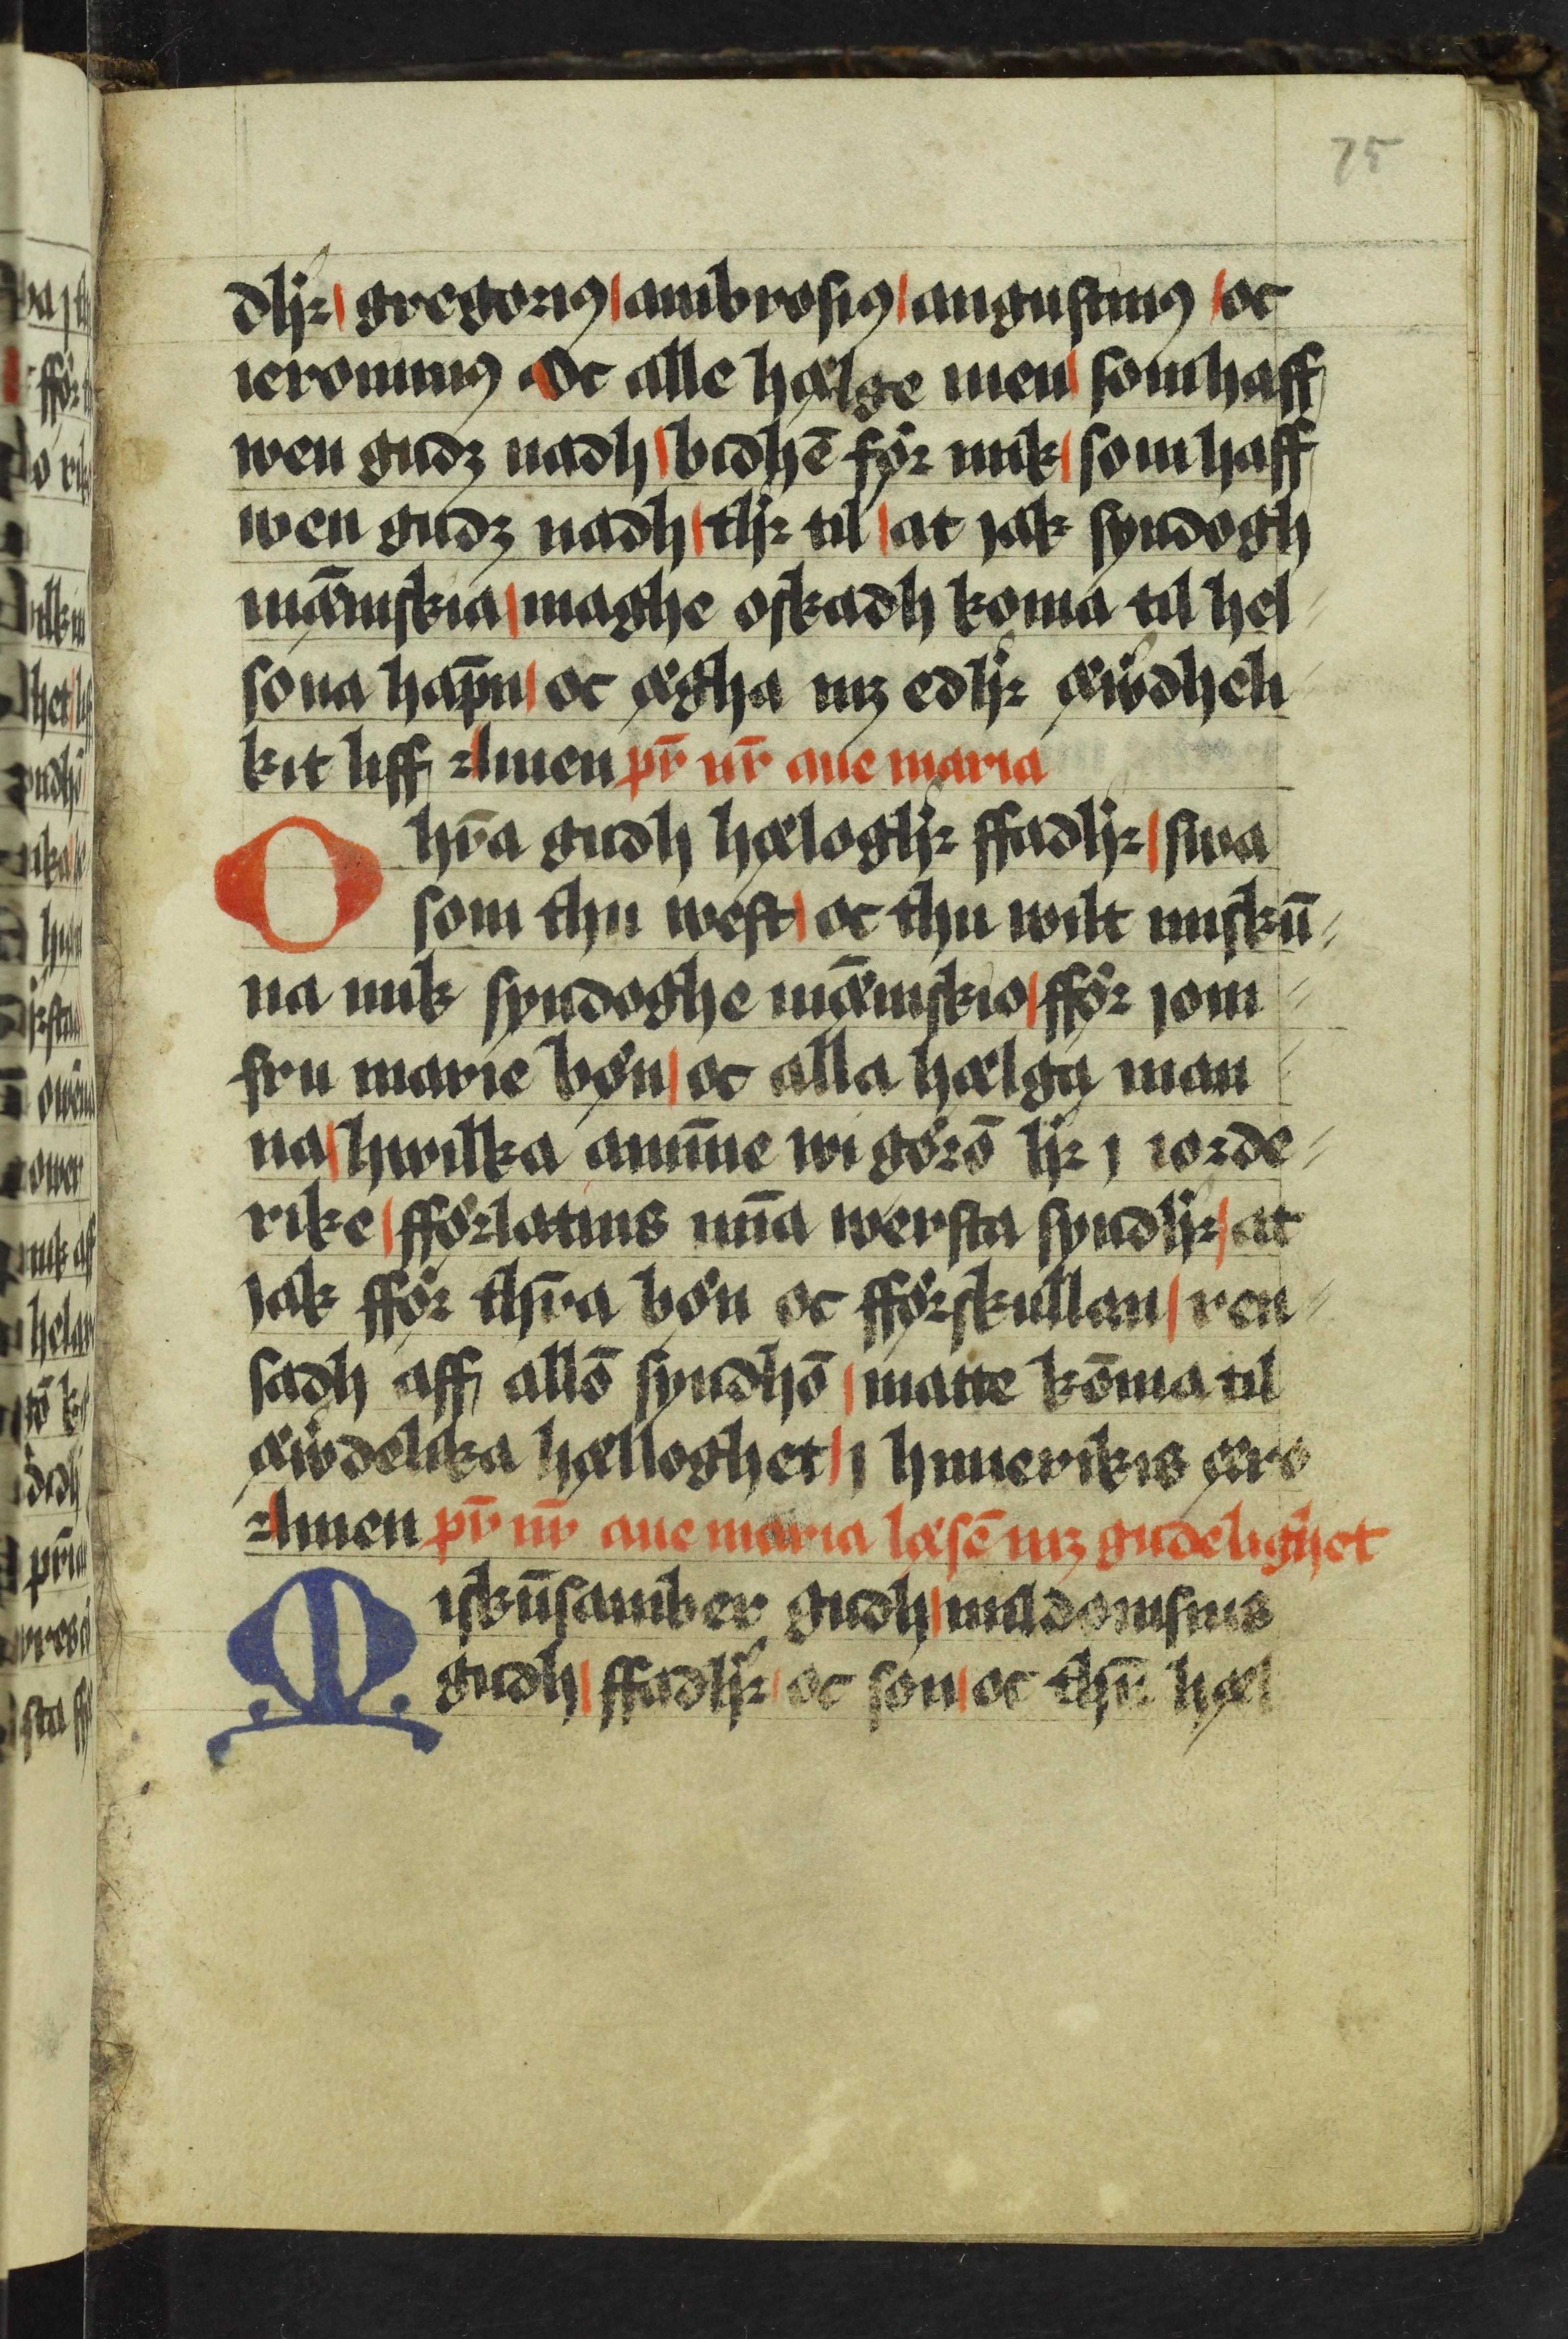 75
dhꝛ | gregoriꝰ | ambrosiꝰ | augustinꝰ | oc
ieronimꝰ Oc alle hælge men | som haff
wen gudz nadh | bidhē før mik | som haff
wen gudz nadh | thꝛ til | at jak syndogh
mæ̅niskia | maghe oskadh koma til hel
sona hāpn | oc ægha mz edhꝛ æwdheli
kit liff Amen pr̄ nr̄ aue maria
O hr̄a gudh hæloghꝛ ffadhꝛ | swa
som thu west | oc thu wilt miskū
na mik syndoghe mæ̅niskio | fför jom
fru marie bøn | oc alla hælga man
na | hwilka aminne wi görō hꝛ j iorde
rike | fförlatins mīa wersta syndhꝛ | at
jak fför thr̄a bøn oc fförskullan | ren
sadh aff allō syndhō | matte kōma til
æwdelika hælloghet | j himerikis æro
Amen pr̄ nr̄ aue maria læsē mz gudelighet
Miskūsamber gudh | mildomsins
gudh | ffadhꝛ oc son | oc thn̄ hæl